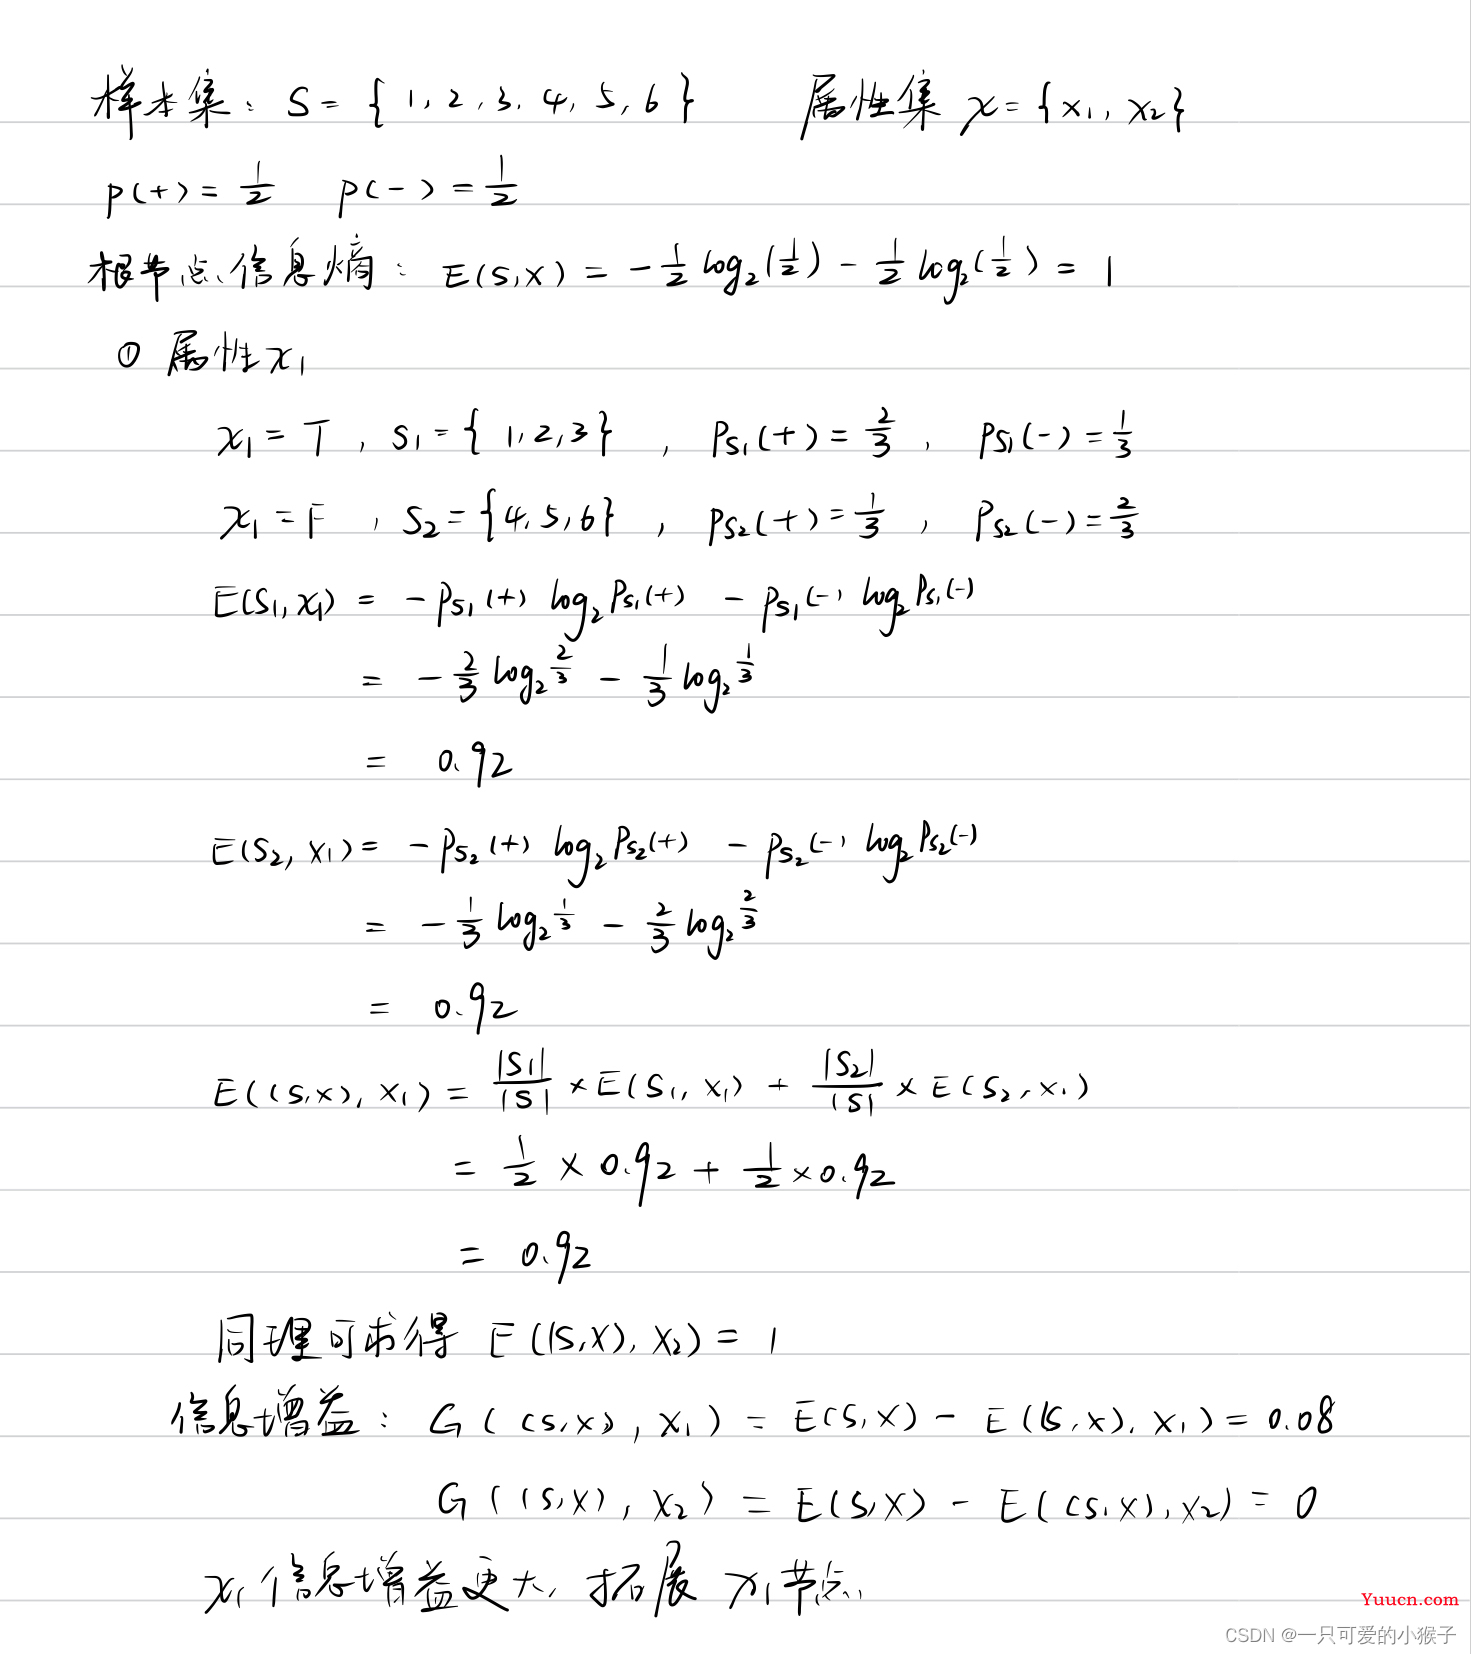 样本集: S = {1, 2, 3, 4, 5, 6} 属性集 x = {x₁, x₂}
P(+) = 1/2 P(-) = 1/2
根节点信息熵: E(S,X) = -1/2 log₂(1/2) - 1/2 log₂(1/2) = 1
① 属性x₁
x₁ = T , S₁ = {1,2,3} , PS₁(+) = 2/3 , PS₁(-) = 1/3
x₁ = F , S₂ = {4,5,6} , PS₂(+) = 1/3 , PS₂(-) = 2/3
E(S₁, x₁) = -PS₁(+) log₂PS₁(+) - PS₁(-) log₂PS₁(-)
= -2/3 log₂ 2/3 - 1/3 log₂ 1/3
= 0.92
E(S₂, x₁) = -PS₂(+) log₂PS₂(+) - PS₂(-) log₂PS₂(-)
= -1/3 log₂ 1/3 - 2/3 log₂ 2/3
= 0.92
E((S,X), x₁) = |S₁|/|S| × E(S₁, x₁) + |S₂|/|S| × E(S₂, x₁)
= 1/2 × 0.92 + 1/2 × 0.92
= 0.92
同理可求得 E((S,X), X₂) = 1
信息增益: G((S,X), X₁) = E(S,X) - E((S,X), X₁) = 0.08
G((S,X), X₂) = E(S,X) - E((S,X), X₂) = 0
x₁信息增益更大, 拓展 x₁节点
Yuucn.com
CSDN @一只可爱的小猴子